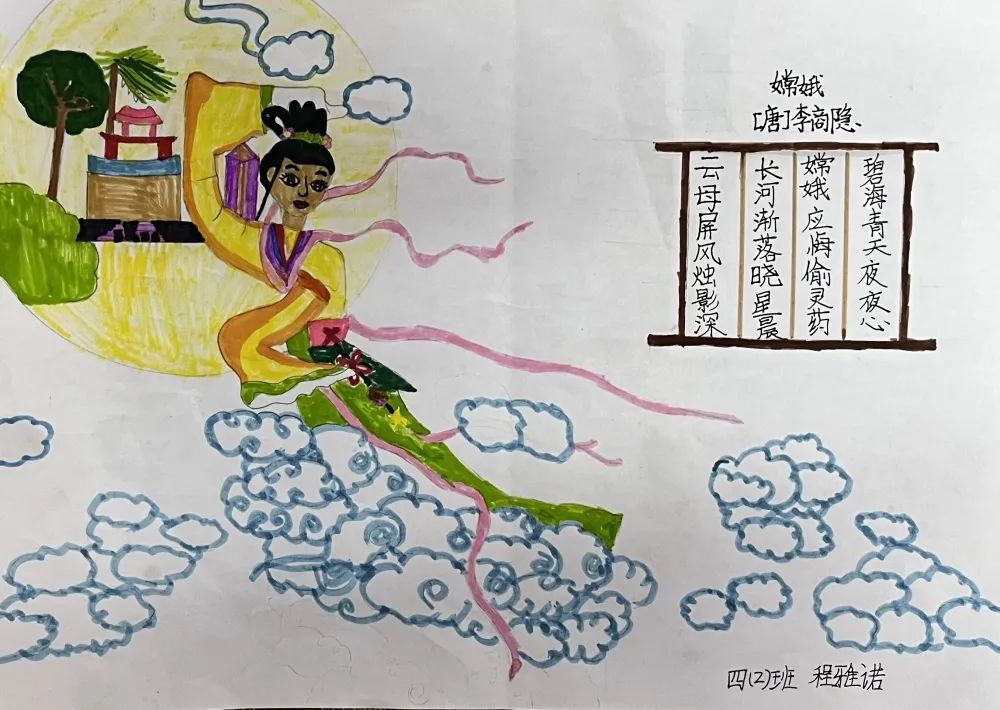 嫦娥
[唐]李商隐、
云母屏风烛影深
长河渐落晓星晨
嫦娥应悔偷灵药
碧海青天夜夜心
四(2)班 程雅诺